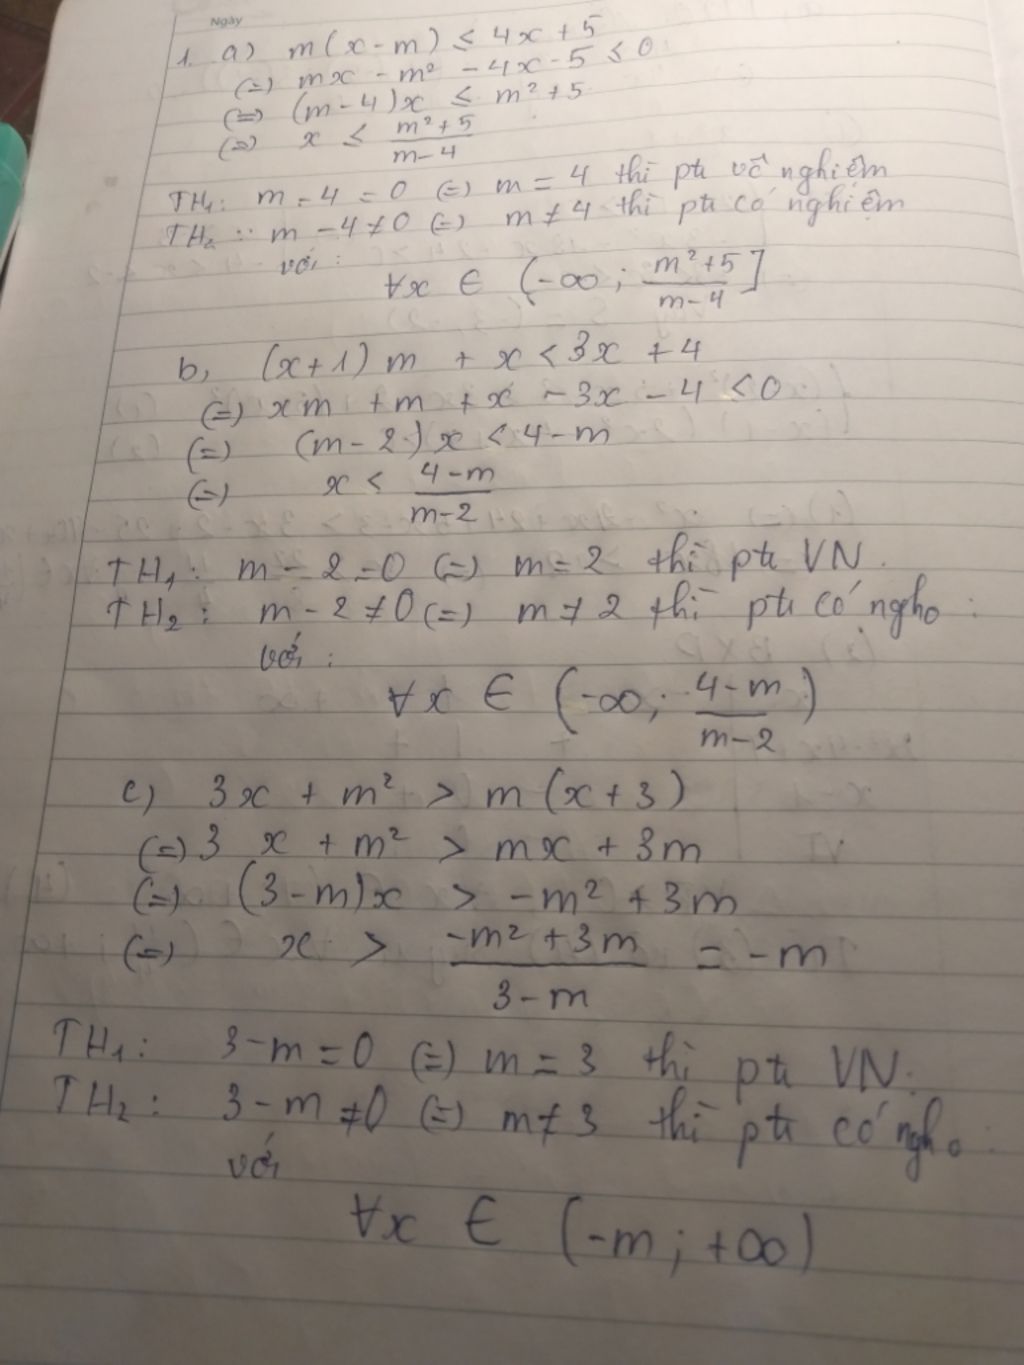 Ngày
1. a) m(x-m) ≤ 4x+5
(=) mx - m² - 4x-5 ≤ 0
(=) (m-4)x ≤ m²+5
(=) x ≤ \frac{m²+5}{m-4}
TH₁: m-4=0 (=) m=4 thì ptr vô nghiệm
TH₂: m-4≠0 (=) m≠4 thì ptr có nghiệm
với:
∀x ∈ (-∞; \frac{m²+5}{m-4}]
b, (x+1)m + x < 3x + 4
(=) xm + m + x - 3x - 4 < 0
(=) (m-2)x < 4-m
(=) x < \frac{4-m}{m-2}
TH₁: m-2=0 (=) m=2 thì ptr VN.
TH₂: m-2≠0 (=) m≠2 thì ptr có ngho:
với:
∀x ∈ (-∞; \frac{4-m}{m-2})
c) 3x + m² > m(x+3)
(=) 3x + m² > mx + 3m
(=) (3-m)x > -m² + 3m
(=) x > \frac{-m²+3m}{3-m} = -m
TH₁: 3-m=0 (=) m=3 thì ptr VN.
TH₂: 3-m≠0 (=) m≠3 thì ptr có ngho:
với
∀x ∈ (-m; +∞)